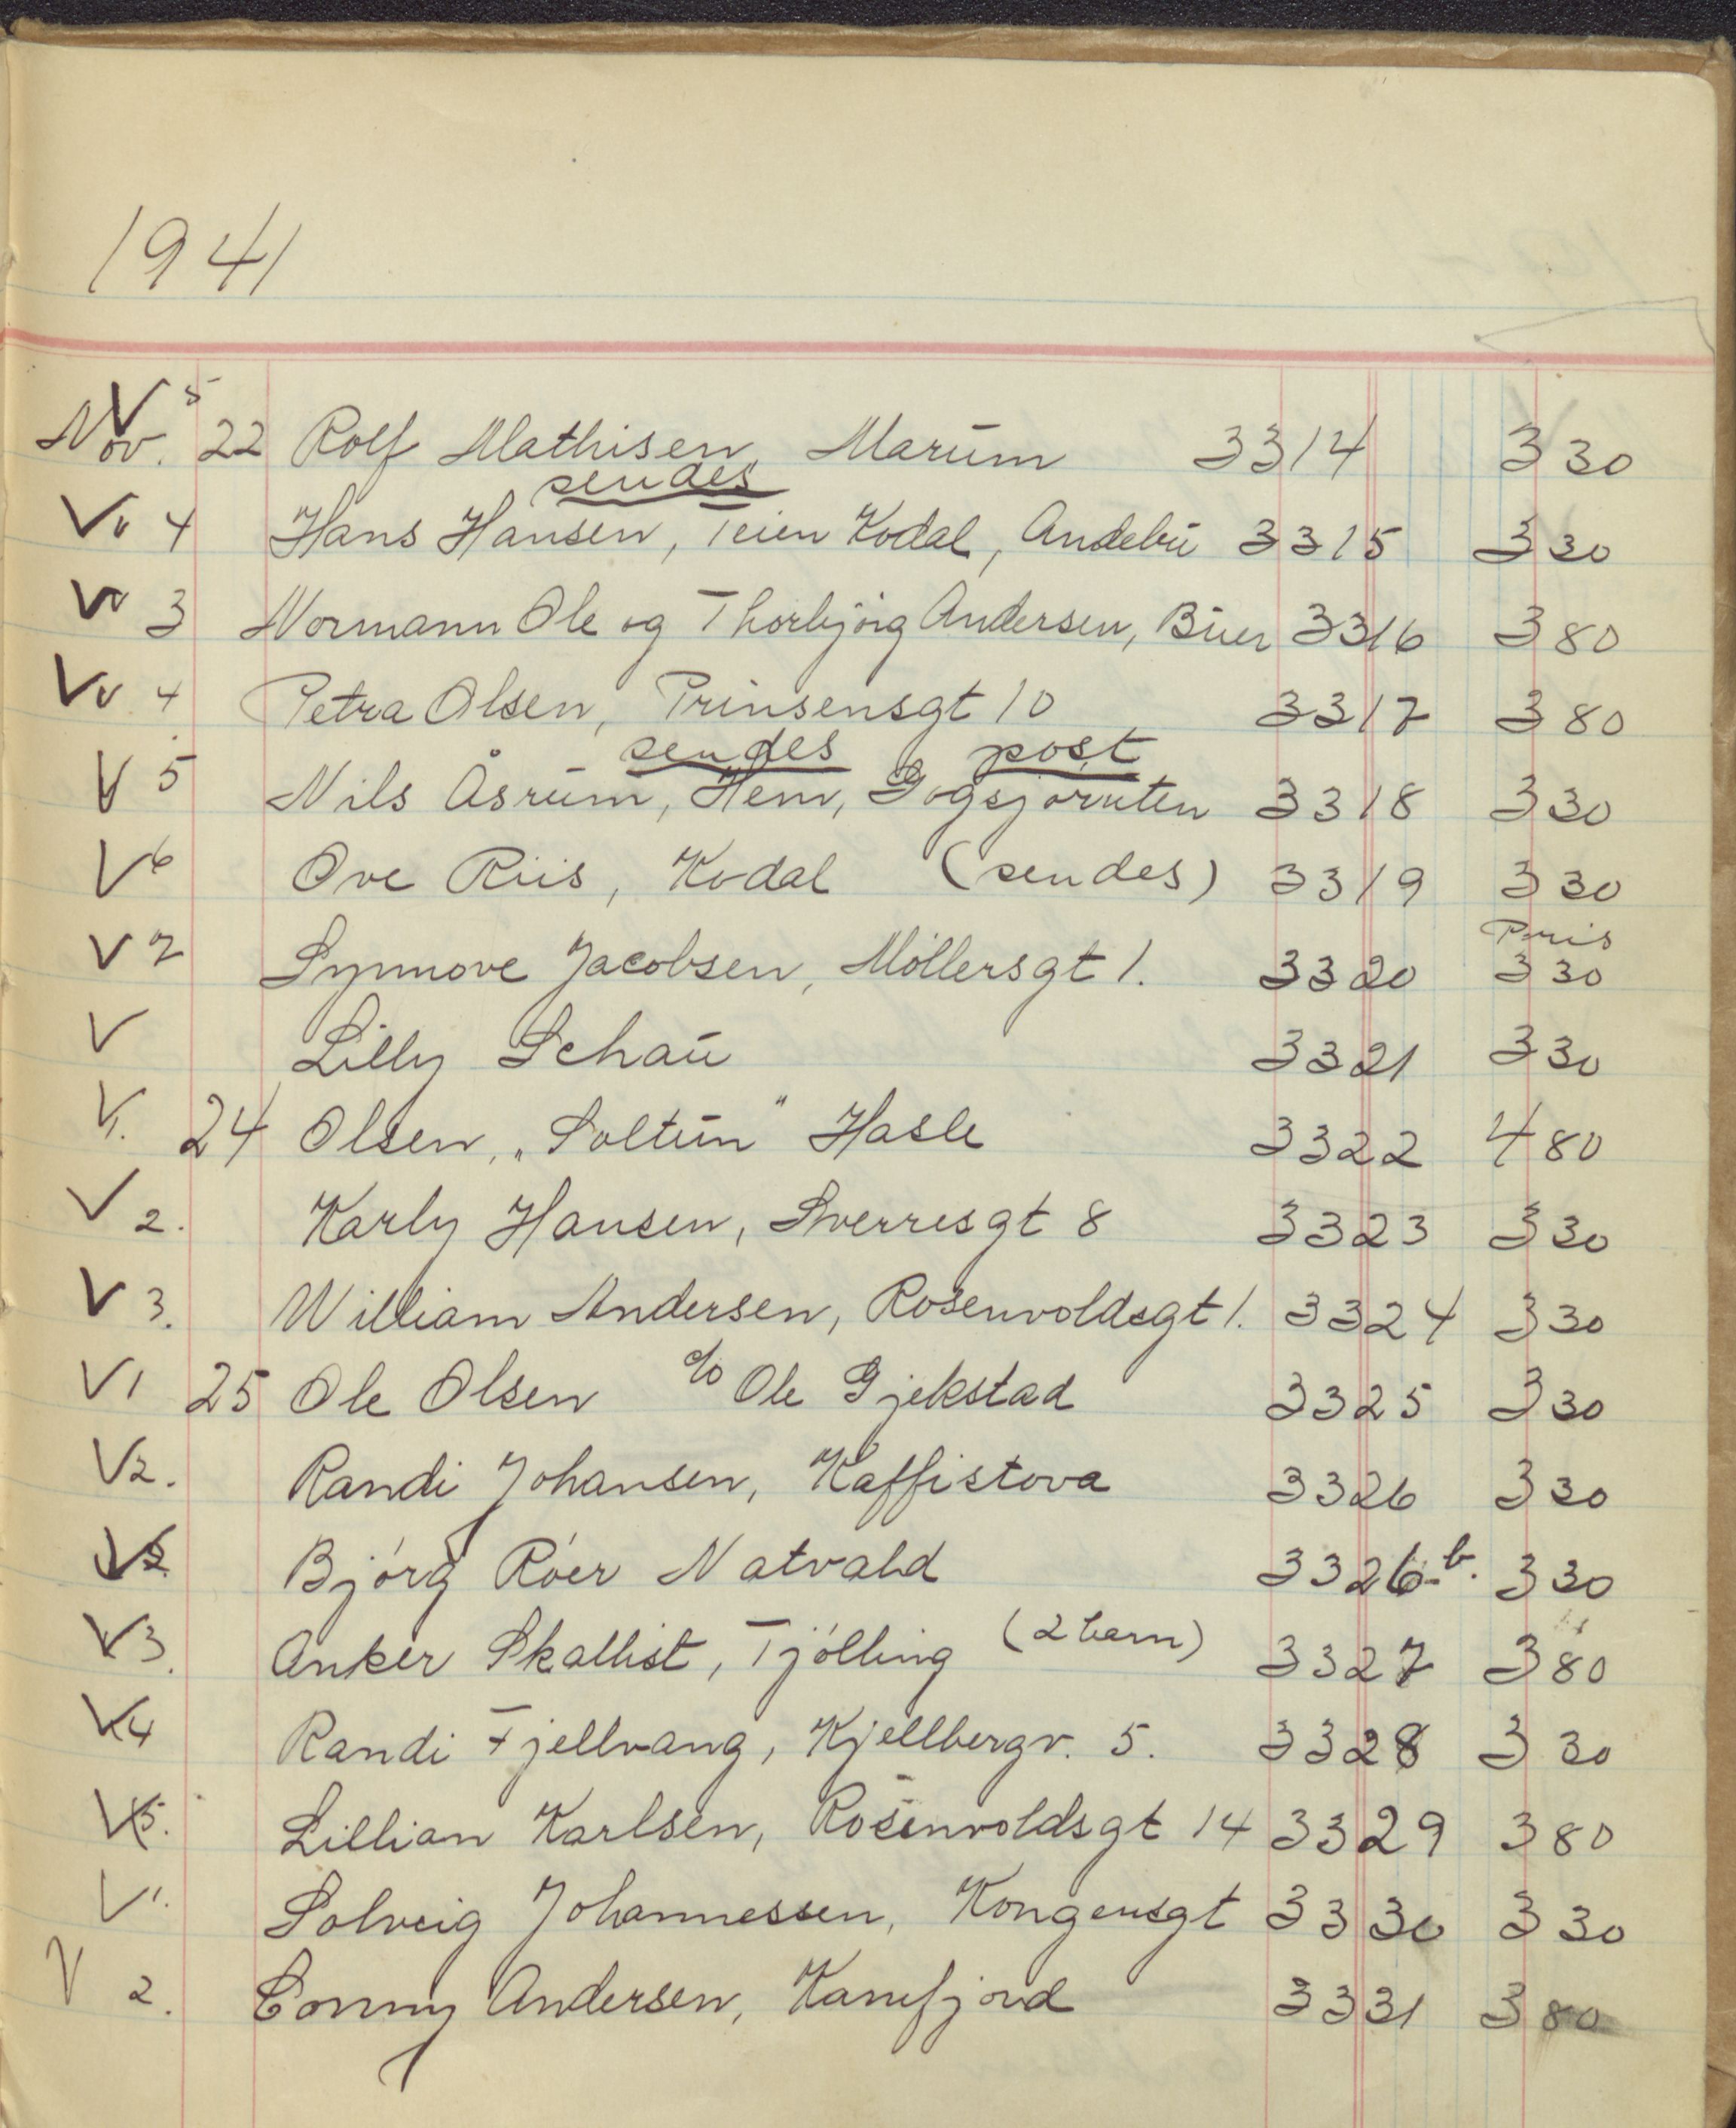 1941
V 5
Nov. 22 Rolf Mathisen, Marum 3314 3 30
sendes
Vv 4 Hans Hansen, Teien Kodal, Andebu 3315 3 30
Vv 3 Normann Ole og Thorbjörg Andersen, Buer 3316 3 80
Vv 4 Petra Olsen, Prinsensgt 10 3317 3 80
sendes post
V 5 Nils Åsrum, Hem, 3318 3 30
V 6 Ove Riis, Kodal (sendes) 3319 3 30
Pris
V 7 Synnove Jacobsen, Möllersgt 1. 3320 3 30
V Lilly Schau 3321 3 30
V 1. 24 Olsen, „Soltun" Hasle 3322 4 80
V 2. Karly Hansen, Sverresgt 8 3323 3 30
V 3. William Andersen, Rosenvoldsgt 1. 3324 3 30
V 1 25 Ole Olsen c/o Ole Gjekstad 3325 3 30
V 2. Randi Johansen, Kaffistova 3326 3 30
V Björg Röer Natvald 3326-b. 3 30
V 3. Anker Skallist, Tjölling (2 barn) 3327 3 80
V 4 Randi Fjellvang, Kjellbergv. 5. 3328 3 30
V 5. Lillian Karlsen, Rosenvoldsgt 14 3329 3 80
V 1. Solveig Johannessen, Kongensgt 3330 3 30
V 2. Conny Andersen, Kamfjord 3331 3 80